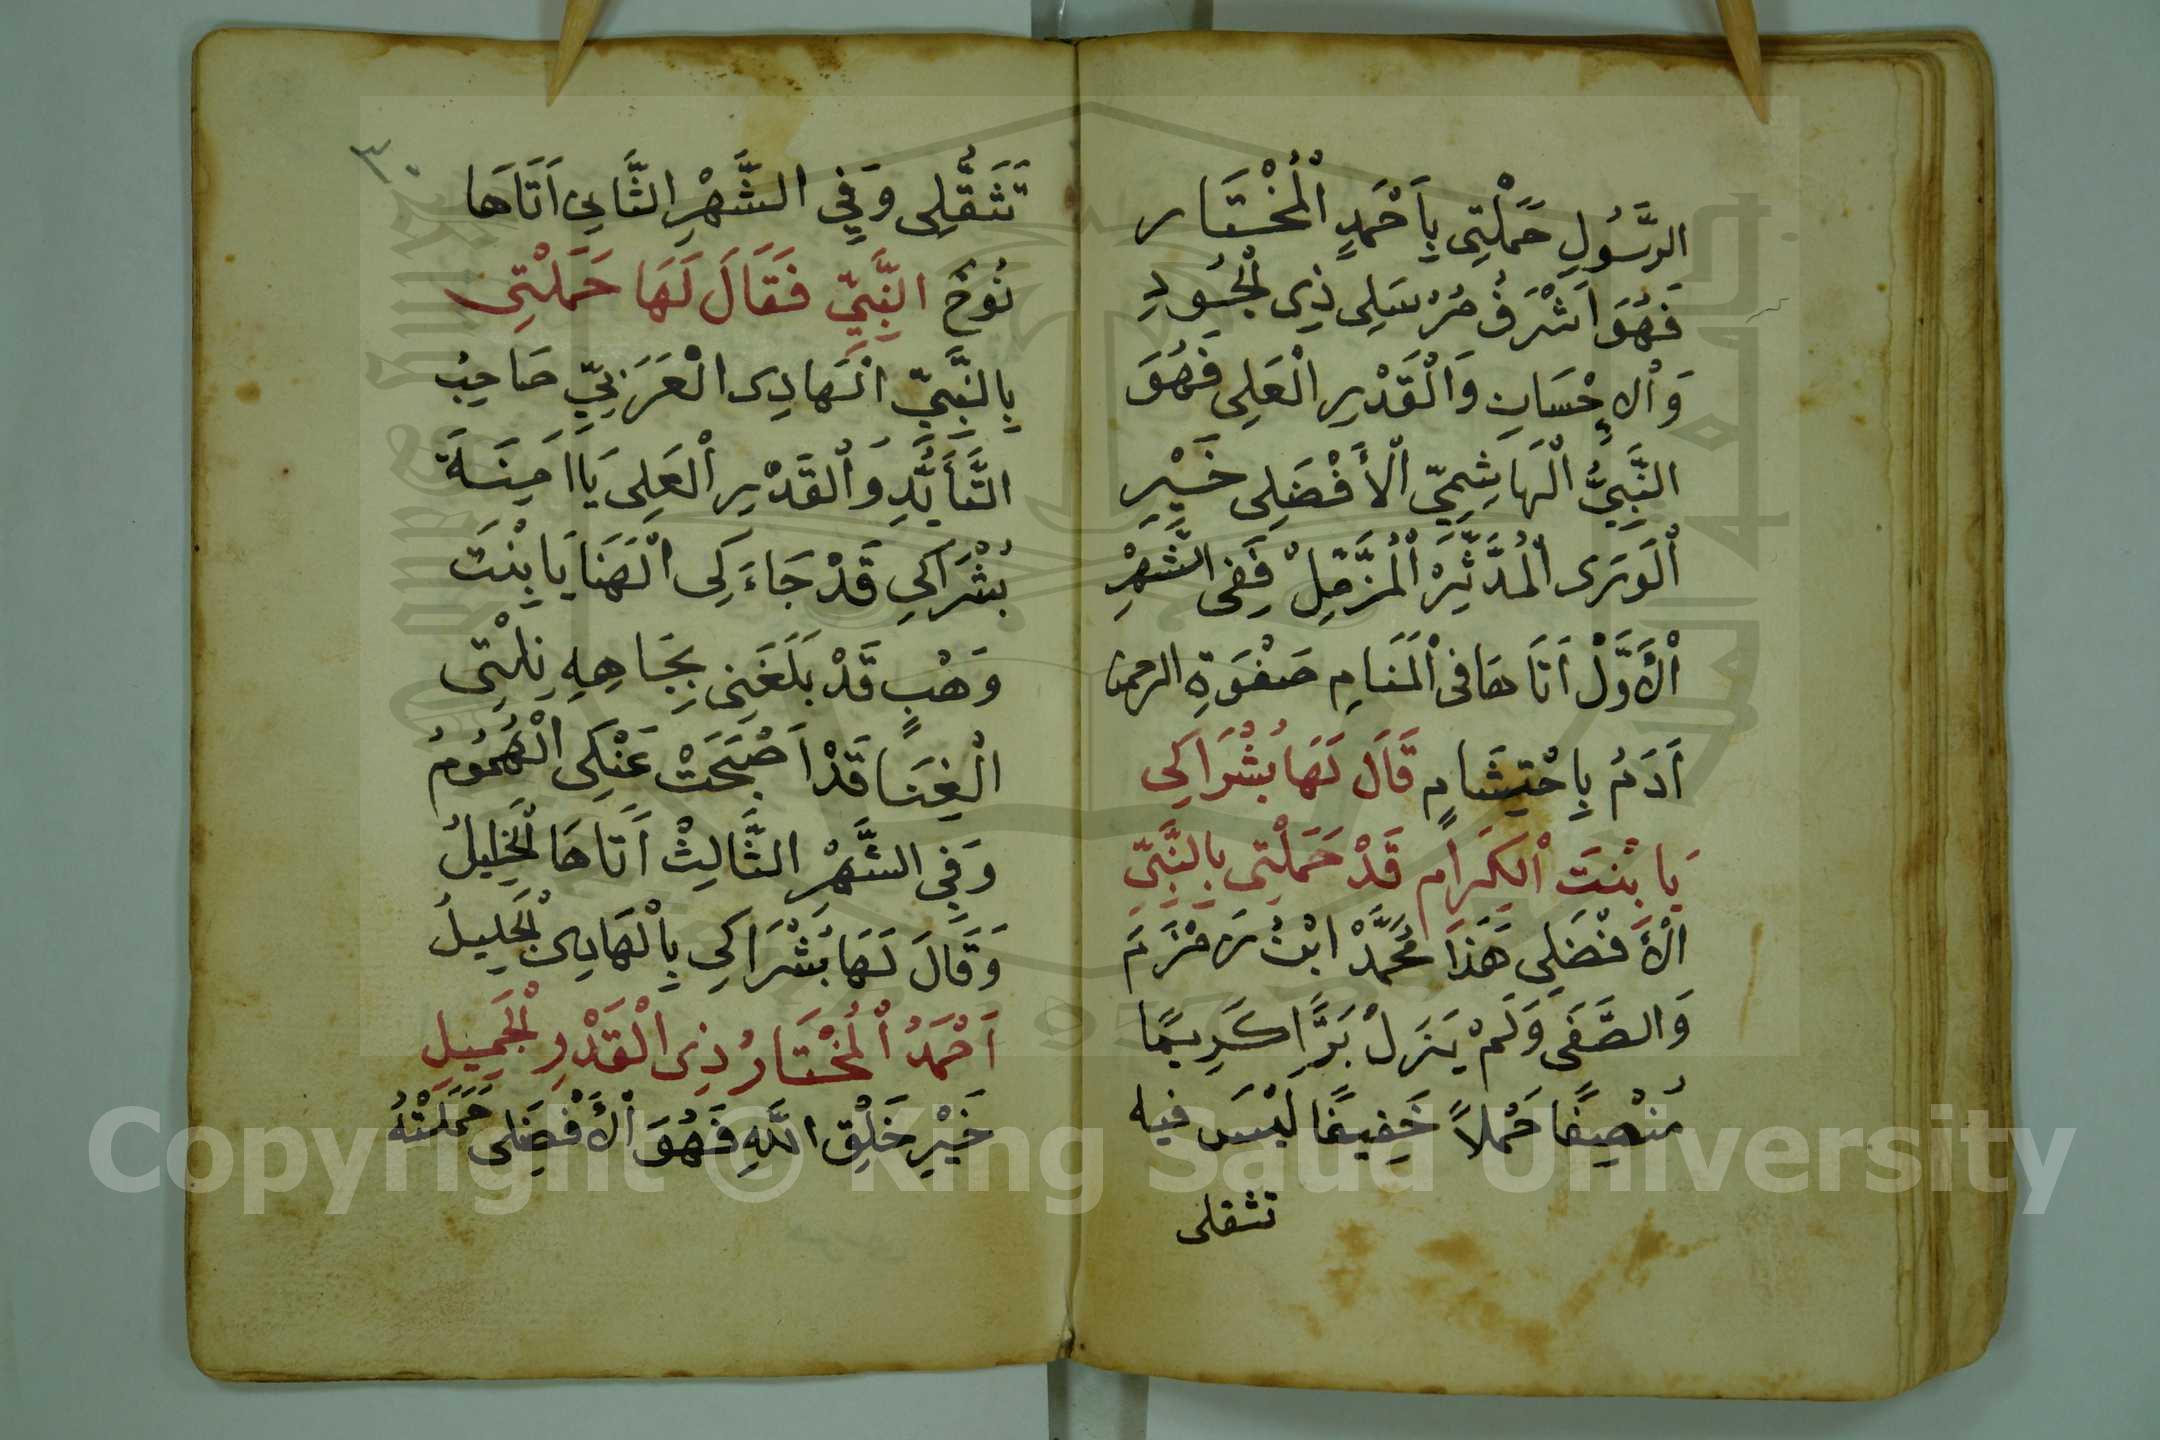 الرَّسُولِ حَمَلْتِى بِاَحْمَدٍ الْمُخْتَار
فَهُوَ اَشْرَفُ مُرْسَلِى ذِى الْجُودِ
وَالاِحْسَانِ وَالْقَدْرِ الْعَلِى فَهُوَ
النَّبِيُّ الْهَاشِمِيِّ الْأَفْضَلِى خَيْرِ
الْوَرَى الْمُدَّثِّرْ الْمُزَّمِّلْ فَفِى الشَّهْرِ
الْأَوَّلْ اَتَاهَا فى الْمَنَامِ صَفْوَةِ الرحمن
اَدَمُ بِاحْتِشَامٍ قَالَ لَهَا بُشْرَاكِي
يَا بِنْتَ الْكِرَامِ قَدْ حَمَلْتِى بِالنَّبِيِّ
الْأَفْضَلِى هَذَا مُحَمَّدْ ابْنُ زَمْزَمَ
وَالصَّفَى وَلَمْ يَزَلْ بَرًّا كَرِيمًا
مُنْصِفًا حَمْلاً خَفِيفًا لَيْسَ فيه
تثقلى
٣٠
تَثَقُّلِى وَفِي الشَّهْرِ الثَّانِي اَتَاهَا
نُوحٌ النَّبِيِّ فَقَالَ لَهَا حَمَلْتِى
بِالنَّبِيِّ الْهَادِى الْعَرَبِيِّ صَاحِبُ
التَّأَيُّدِ وَالْقَدْرِ الْعَلِى يَا اَمِنَةَ
بُشْرَاكِي قَدْ جَاءَكِى الْهَنَا يَا بِنْتَ
وَهْبٍ قَدْ بَلَغَنِى بِجَاهِهِ نِلْتِى
الْغِنَا قَدْ اَصْبَحَتْ عَنْكِى الْهُمُومُ
وَفِي الشَّهْرِ الثَّالِثْ اَتَاهَا الْخَلِيلُ
وَقَالَ لَهَا بُشْرَاكِى بِالْهَادِى الْجَلِيلُ
اَحْمَدُ الْمُخْتَارُ ذِى الْقَدْرِ الْجَمِيلِ
خَيْرِ خَلْقِ اللَّهِ فَهُوَ الْأَفْضَلِى حَمَلَتْهُ
Copyright © King Saud University